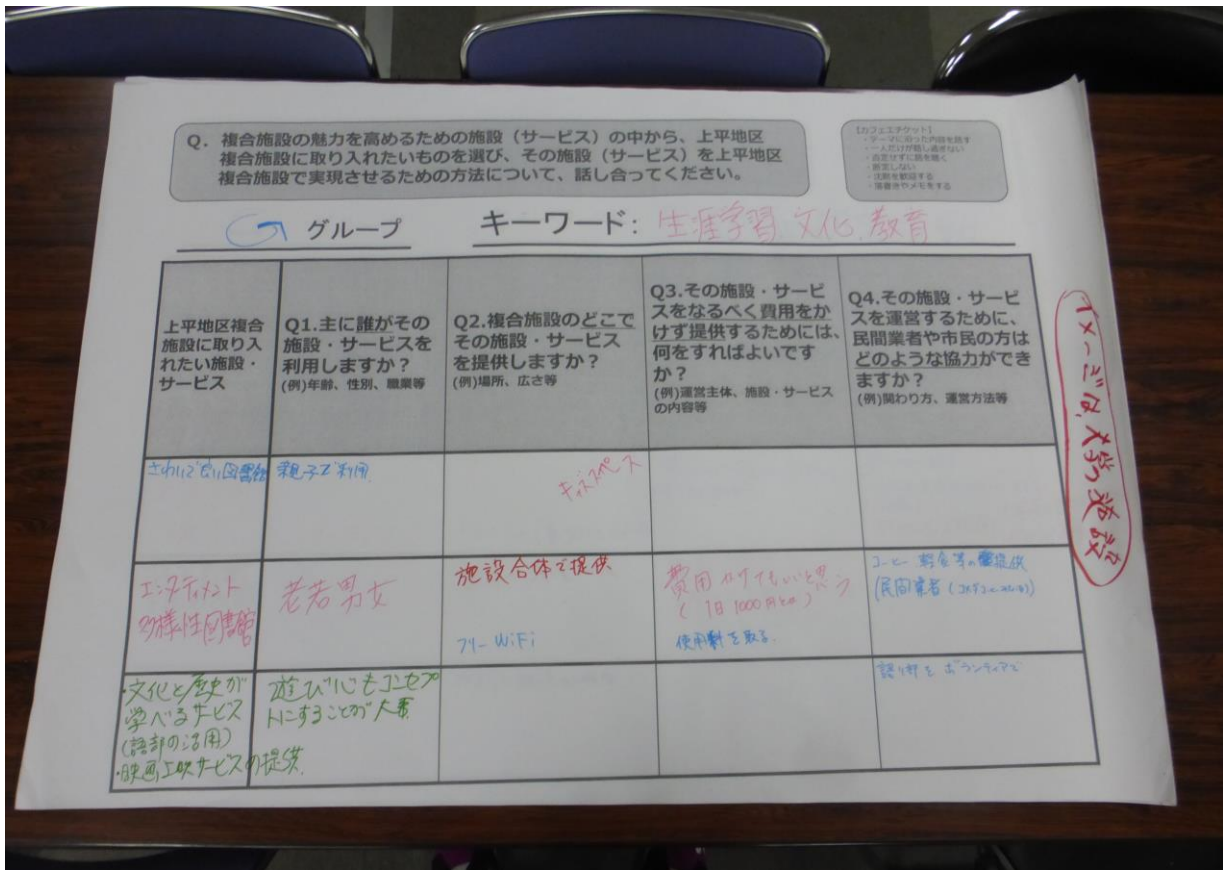 Q. 複合施設の魅力を高めるための施設（サービス）の中から、上平地区
複合施設に取り入れたいものを選び、その施設（サービス）を上平地区
複合施設で実現させるための方法について、話し合ってください。
【カフェエチケット】
・テーマに沿った内容を話す
・一人だけが話し過ぎない
・否定せずに話を聴く
・断定しない
・沈黙を歓迎する
・落書きやメモをする
グループ
キーワード：生涯学習、文化、教育
上平地区複合
施設に取り入
れたい施設・
サービス
Q1.主に誰がその
施設・サービスを
利用しますか？
(例)年齢、性別、職業等
Q2.複合施設のどこで
その施設・サービス
を提供しますか？
(例)場所、広さ等
Q3.その施設・サービ
スをなるべく費用をか
けず提供するためには、
何をすればよいです
か？
(例)運営主体、施設・サービス
の内容等
Q4.その施設・サービ
スを運営するために、
民間業者や市民の方は
どのような協力ができ
ますか？
(例)関わり方、運営方法等
さわいで良い図書館
親子で利用
キッズスペース
エンターティメント
多様性図書館
老若男女
施設合体で提供
フリーWiFi
費用かけてもいいと思う
(1日1000円とか)
使用料を取る
コーヒー 軽食等の提供
(民間業者
語り部をボランティアで
・文化と歴史が
学べるサービス
(語部の活用)
・映画上映サービスの提供
遊び心もコンセプ
トにすることが大事
施設